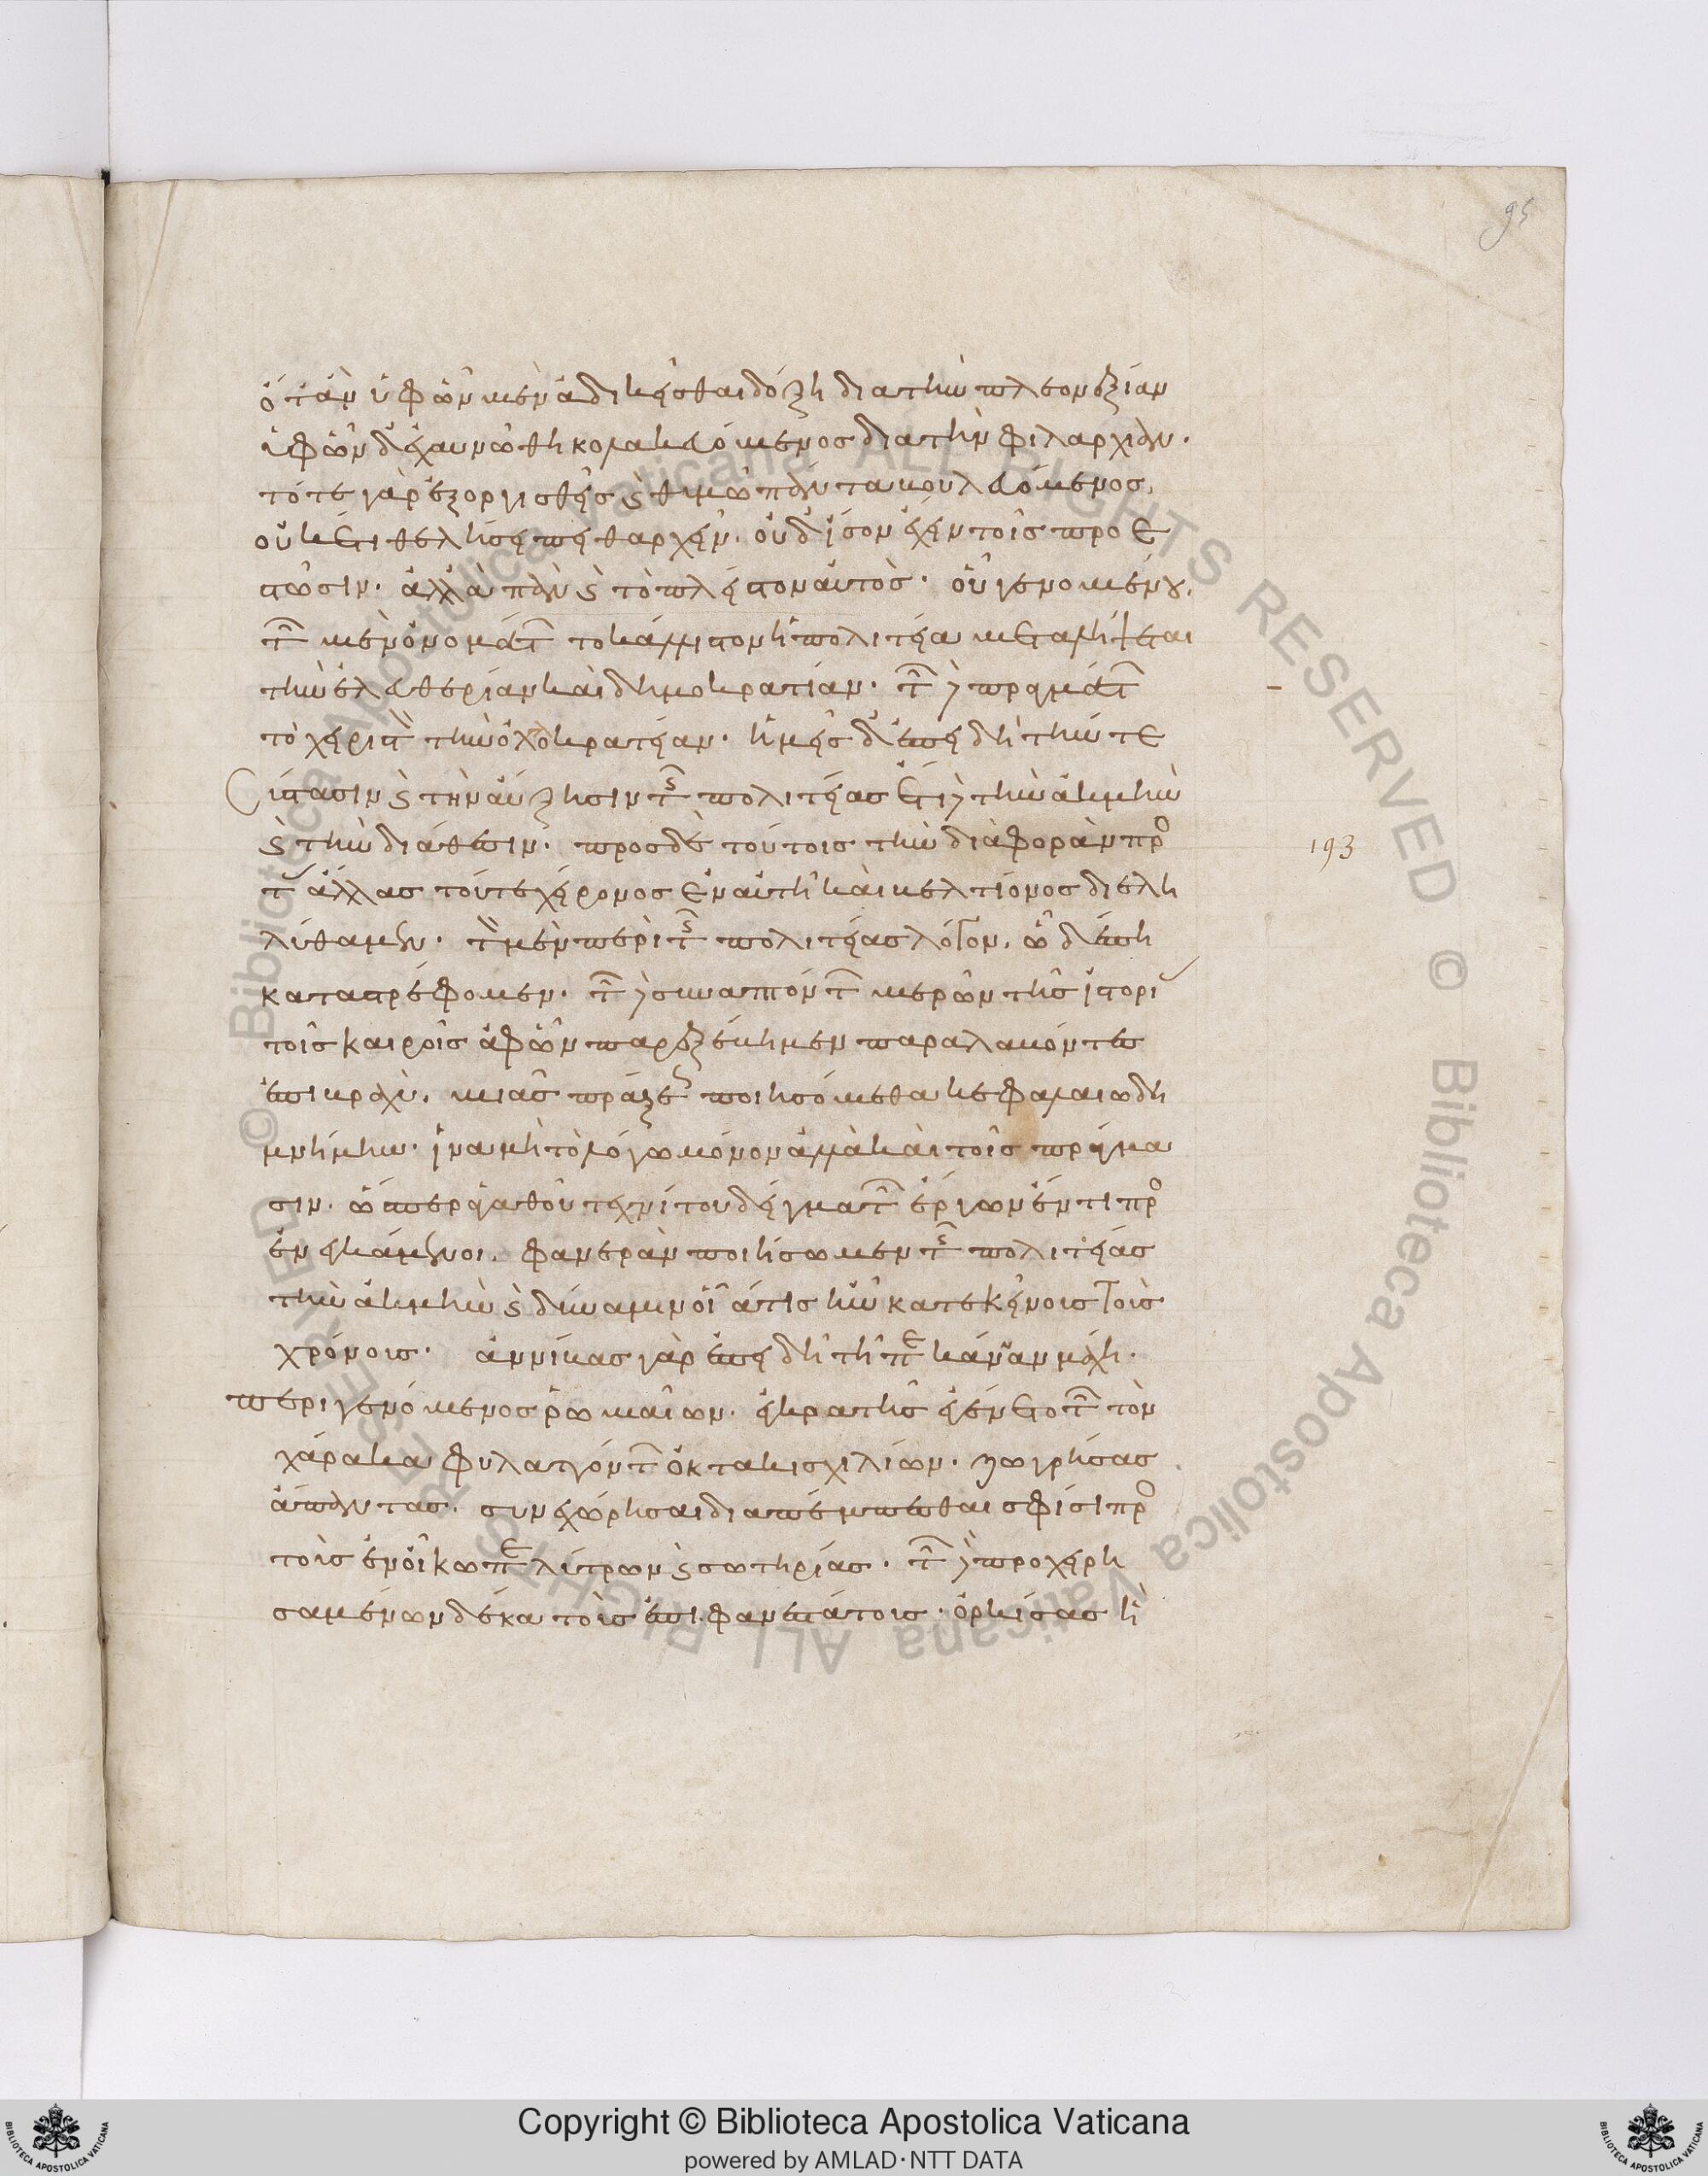 95
ὅταν ὑφ ὧν μὲν ἀδικεῖσθαι δόξη δια τὴν πλεονεξίαν
ὑφ ὧν δὲ χαυνωθῆ κολακευόμενος δια τὴν φιλαρχίαν.
τότε γὰρ ἐξοργισθεὶς καὶ θυμῶ πάντα βουλευόμενος,
οὐκέτι θελήσει πειθαρχεῖν. οὐδ ἴσον ἔχειν τοῖς προε
στῶσιν. ἀλλὰ πᾶν καὶ τὸ πλεῖστον αὐτὸς. οὗ γενομένου,
τῶν μὲν ὀνομάτων το κάλλιστον ἡ πολιτεία μεταλήψεται
τὴν ἐλευθερίαν καὶ δημοκρατίαν. τῶν δὲ πραγμάτων
τὸ χείριστον τὴν ὀχλοκρατείαν. ἡμεῖς δ ἐπειδὴ τήν τε
σύστασιν καὶ τὴν αὔξησιν τῆς πολιτείας ἔτι δὲ τὴν ἀκμὴν
καὶ τὴν διάθεσιν. προς δὲ τούτοις τὴν διαφορὰν πρὸς
τὰς ἄλλας τοῦ τε χείρονος ἐν αὐτῆ καὶ βελτίονος διελη
λύθαμεν. τὸν μὲν περὶ τῆς πολιτείας λόγον, ὧδέ πη
καταστρέφομεν. τῶν δὲ συναπτόντων μερῶν τῆς ἱστορίας
τοῖς καιροῖς ἀφ ὧν παρεξέβημεν παραλαβόντες
ἐπι βραχὺ, μιᾶς πράξεως ποιησόμεθα κεφαλαιώδη
μνήμην. ἵνα μὴ τῶ λόγω μόνον ἀλλὰ καὶ τοῖς πράγμα
σιν. ὥσπερ ἀγαθοῦ τεχνίτου δεῖγμα τῶν ἔργων ἕν τι προ
ενεγκάμενοι. φανερὰν ποιήσωμεν τῆς πολιτείας
τὴν ἀκμὴν καὶ δύναμιν οἵα τις ἦν κατ ἐκείνοις τοῖς
χρόνοις. ἀννίβας γὰρ ἐπειδὴ τῆ περὶ κάνναν μάχη.
περιγενόμενος ῥωμαίων. ἐγκρατὴς ἐγένετο τῶν τὸν
χάρακα φυλαττόντων ὀκτακισχιλίων. ζωγρήσας
ἅπαντας. συνεχώρησαι διαπέμπεσθαι σφίσι προς
τοὺς ἐν οἴκω περὶ λύτρων καὶ σωτηρίας. τῶν δὲ προχειρη
σαμένων δέκα τοὺς ἐπιφανεστάτους. ὁρκίσας ἦ
193
Copyright © Biblioteca Apostolica Vaticana
powered by AMLAD·NTT DATA